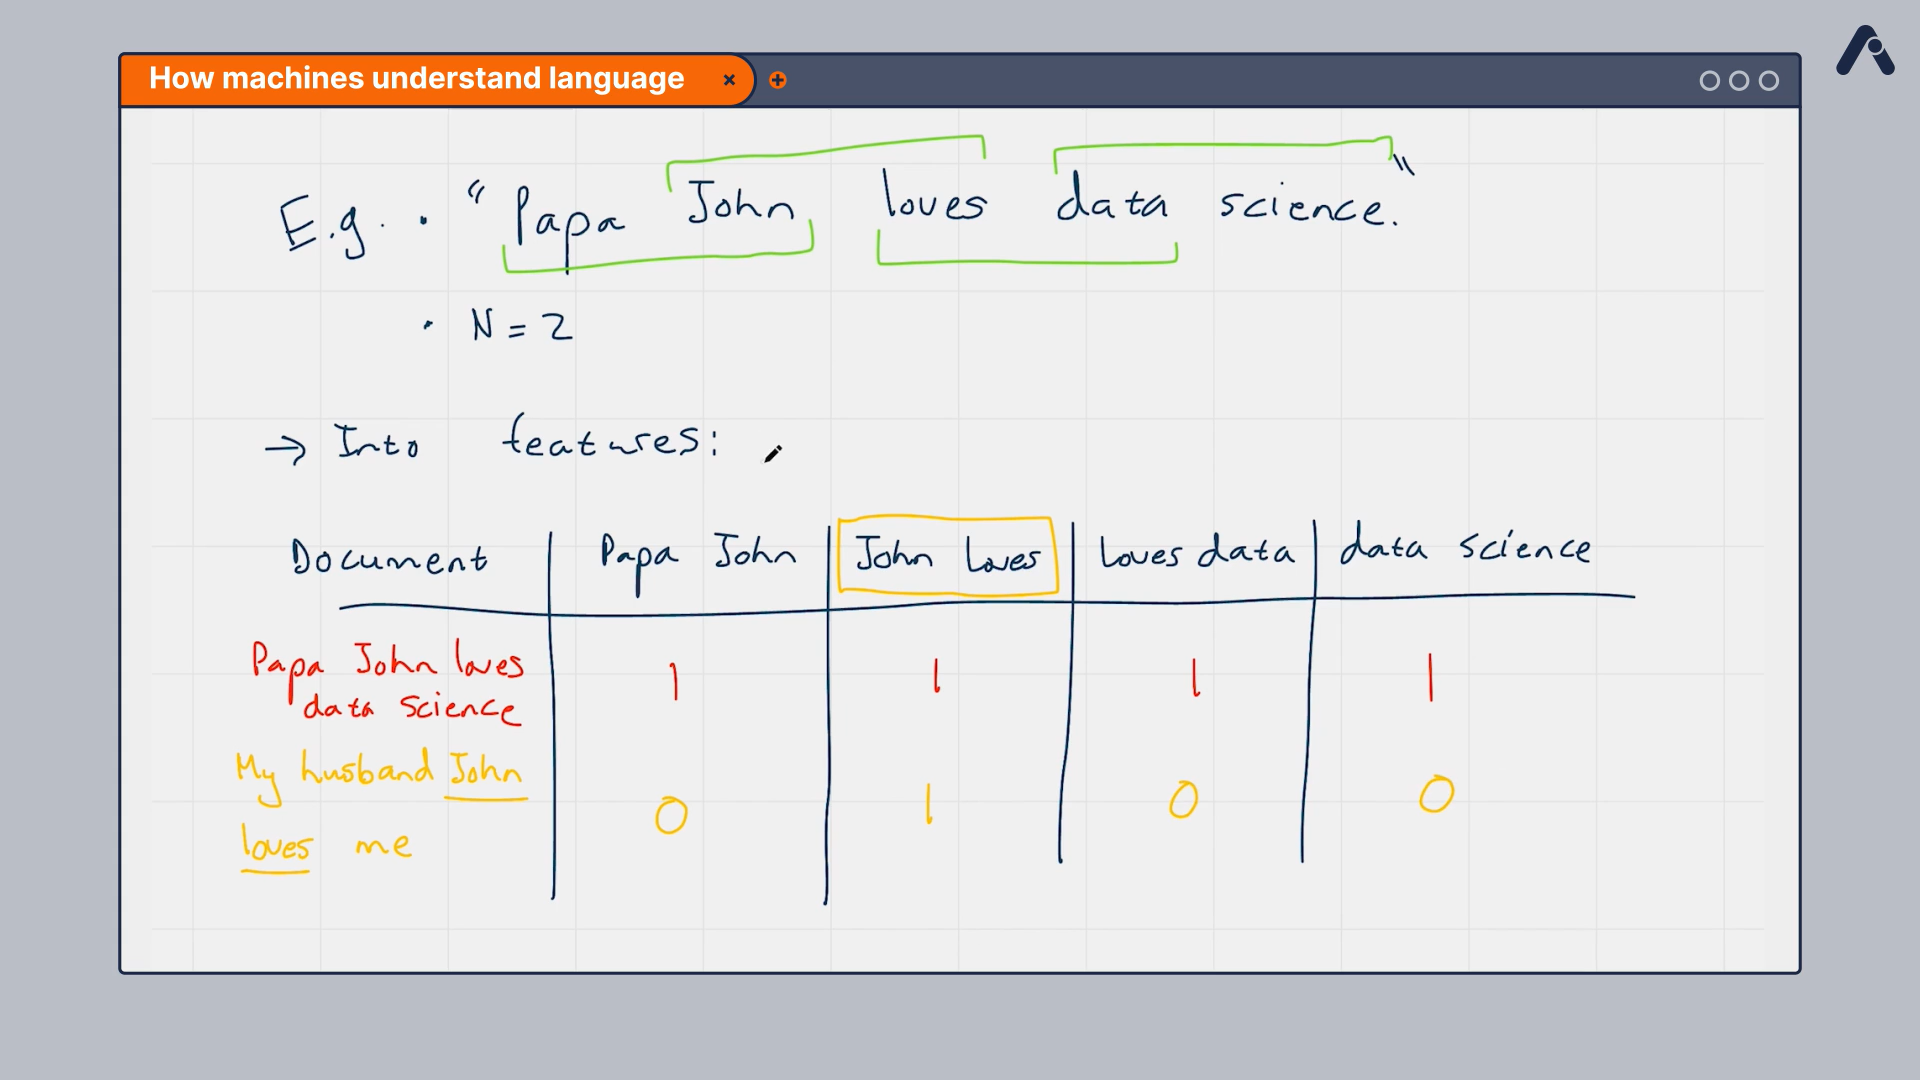 How machines understand language
E.g. • "Papa John loves data science."
• N = 2
→ Into features:
Document | Papa John | John loves | Loves data | data science
Papa John loves 1 1 1 1
data science
My husband John 0 1 0 0
loves me